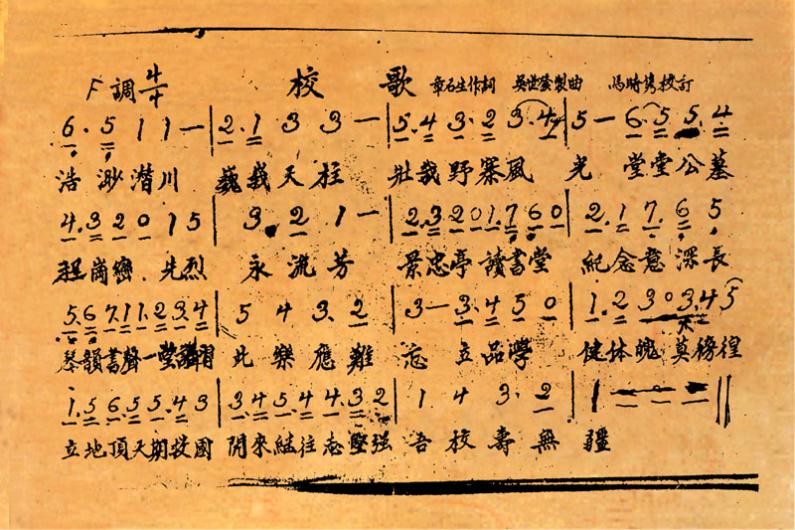 F調4/4 校歌 章石生作詞 吳世鎣製曲 馬時雋校訂
6. 5 1 1 — | 2. 1 3 3 — | 5. 4 3. 2 3. 4 | 5 — 6. 5 5. 4
浩渺潛川 巍峩天柱 壯哉野寨風光 堂堂公墓
4. 3 2 0 1 5 | 3. 2 1 — | 2. 3 2 0 1. 7 6 0 | 2. 1 7. 6 5
崗巒 先烈 永流芳 景忠亭 讀書堂 紀念意深長
5. 6 7. 1 1. 2 3. 4 | 5 4 3. 2 | 3 — 3. 4 5 0 | 1. 2 3 0 3. 4 5
琴韻書聲一堂 此樂應難忘 立品學 健体魄 莫徬徨
1. 5 6. 5 5. 4 3 | 3. 4 5 4 4. 3 2 | 1 4 3. 2 | 1 — — — ||
立地頂天期扶國 開來繼往志堅强 吾校壽無疆